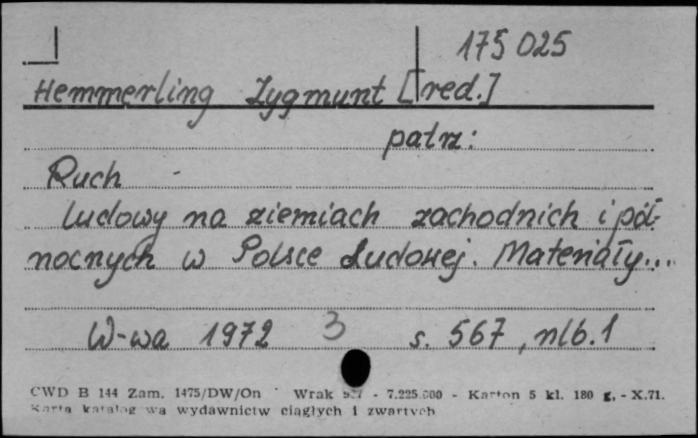 175 025
Hemmerling Zygmunt [red.]
patrz:
Ruch
ludowy na ziemiach zachodnich i pół-
nocnych w Polsce Ludowej. Materiały...
W-wa 1972 3 s. 567, nlb. 1
CWD B 144 Zam. 1475/DW/On Wrak - 7.225.000 - Karton 5 kl. 180 g. - X.71.
Karta katalogowa wydawnictw ciągłych i zwartych